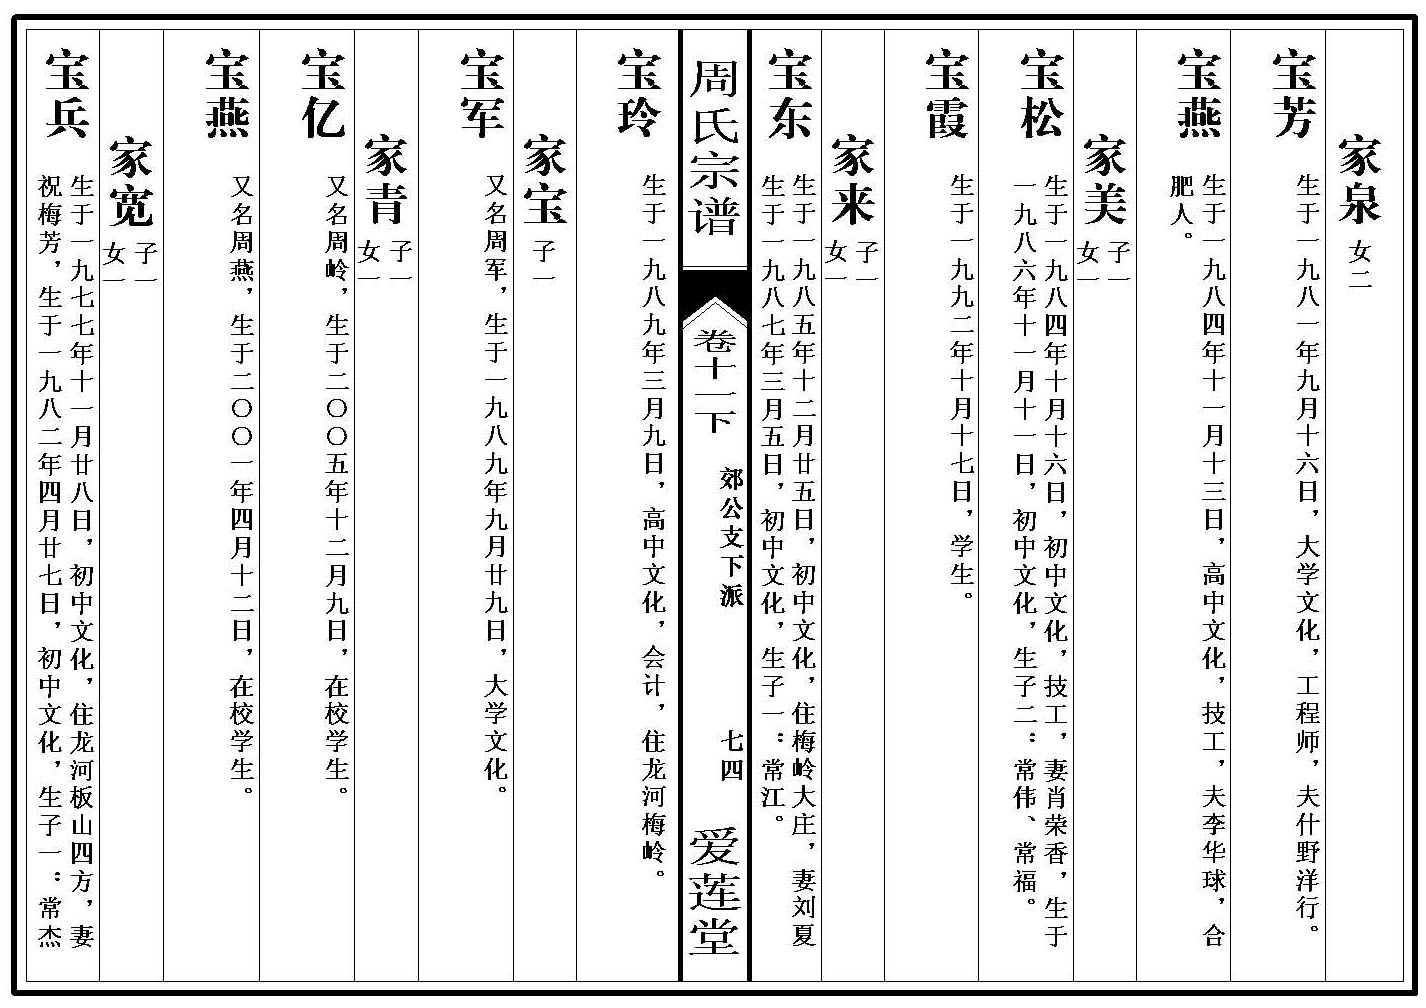 家泉 女二
宝芳 生于一九八一年九月十六日，大学文化，工程师，夫什野洋行。
宝燕 生于一九八四年十一月十三日，高中文化，技工，夫李华球，合
肥人。
家美 子一
女一
宝松 生于一九八四年十月十六日，初中文化，技工，妻肖荣香，生于
一九八六年十一月十一日，初中文化，生子二：常伟、常福。
宝霞 生于一九九二年十月十七日，学生。
家来 子一
女一
宝东 生于一九八五年十二月廿五日，初中文化，住梅岭大庄，妻刘夏
生于一九八七年三月五日，初中文化，生子一：常江。
周氏宗谱
卷十一下
郊公支下派
七四
爱莲堂
宝玲 生于一九八九年三月九日，高中文化，会计，住龙河梅岭。
家宝 子一
宝军 又名周军，生于一九八九年九月廿九日，大学文化。
家青 子一
女一
宝亿 又名周岭，生于二〇〇五年十二月九日，在校学生。
宝燕 又名周燕，生于二〇〇一年四月十二日，在校学生。
家宽 子一
女一
宝兵 生于一九七七年十一月廿八日，初中文化，住龙河板山四方，妻
祝梅芳，生于一九八二年四月廿七日，初中文化，生子一：常杰